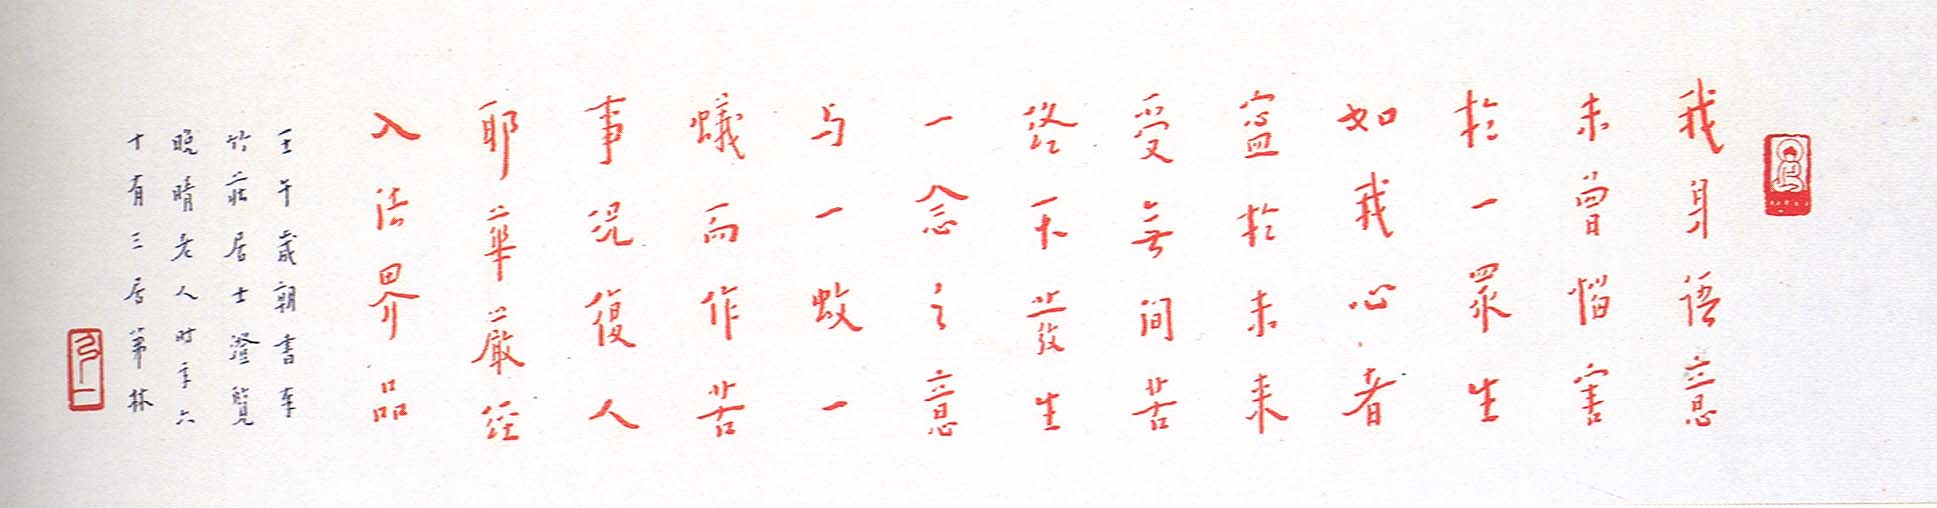 我身語意
未曾惱害
於一眾生
如我心者
寧於未來
受無間苦
終不發生
一念之意
与一蚊一
蟻而作苦
事況復人
耶華嚴經
入法界品
壬午歲朝書奉
竹莊居士澄覽
晚晴老人时年六
十有三居茀林
弘一